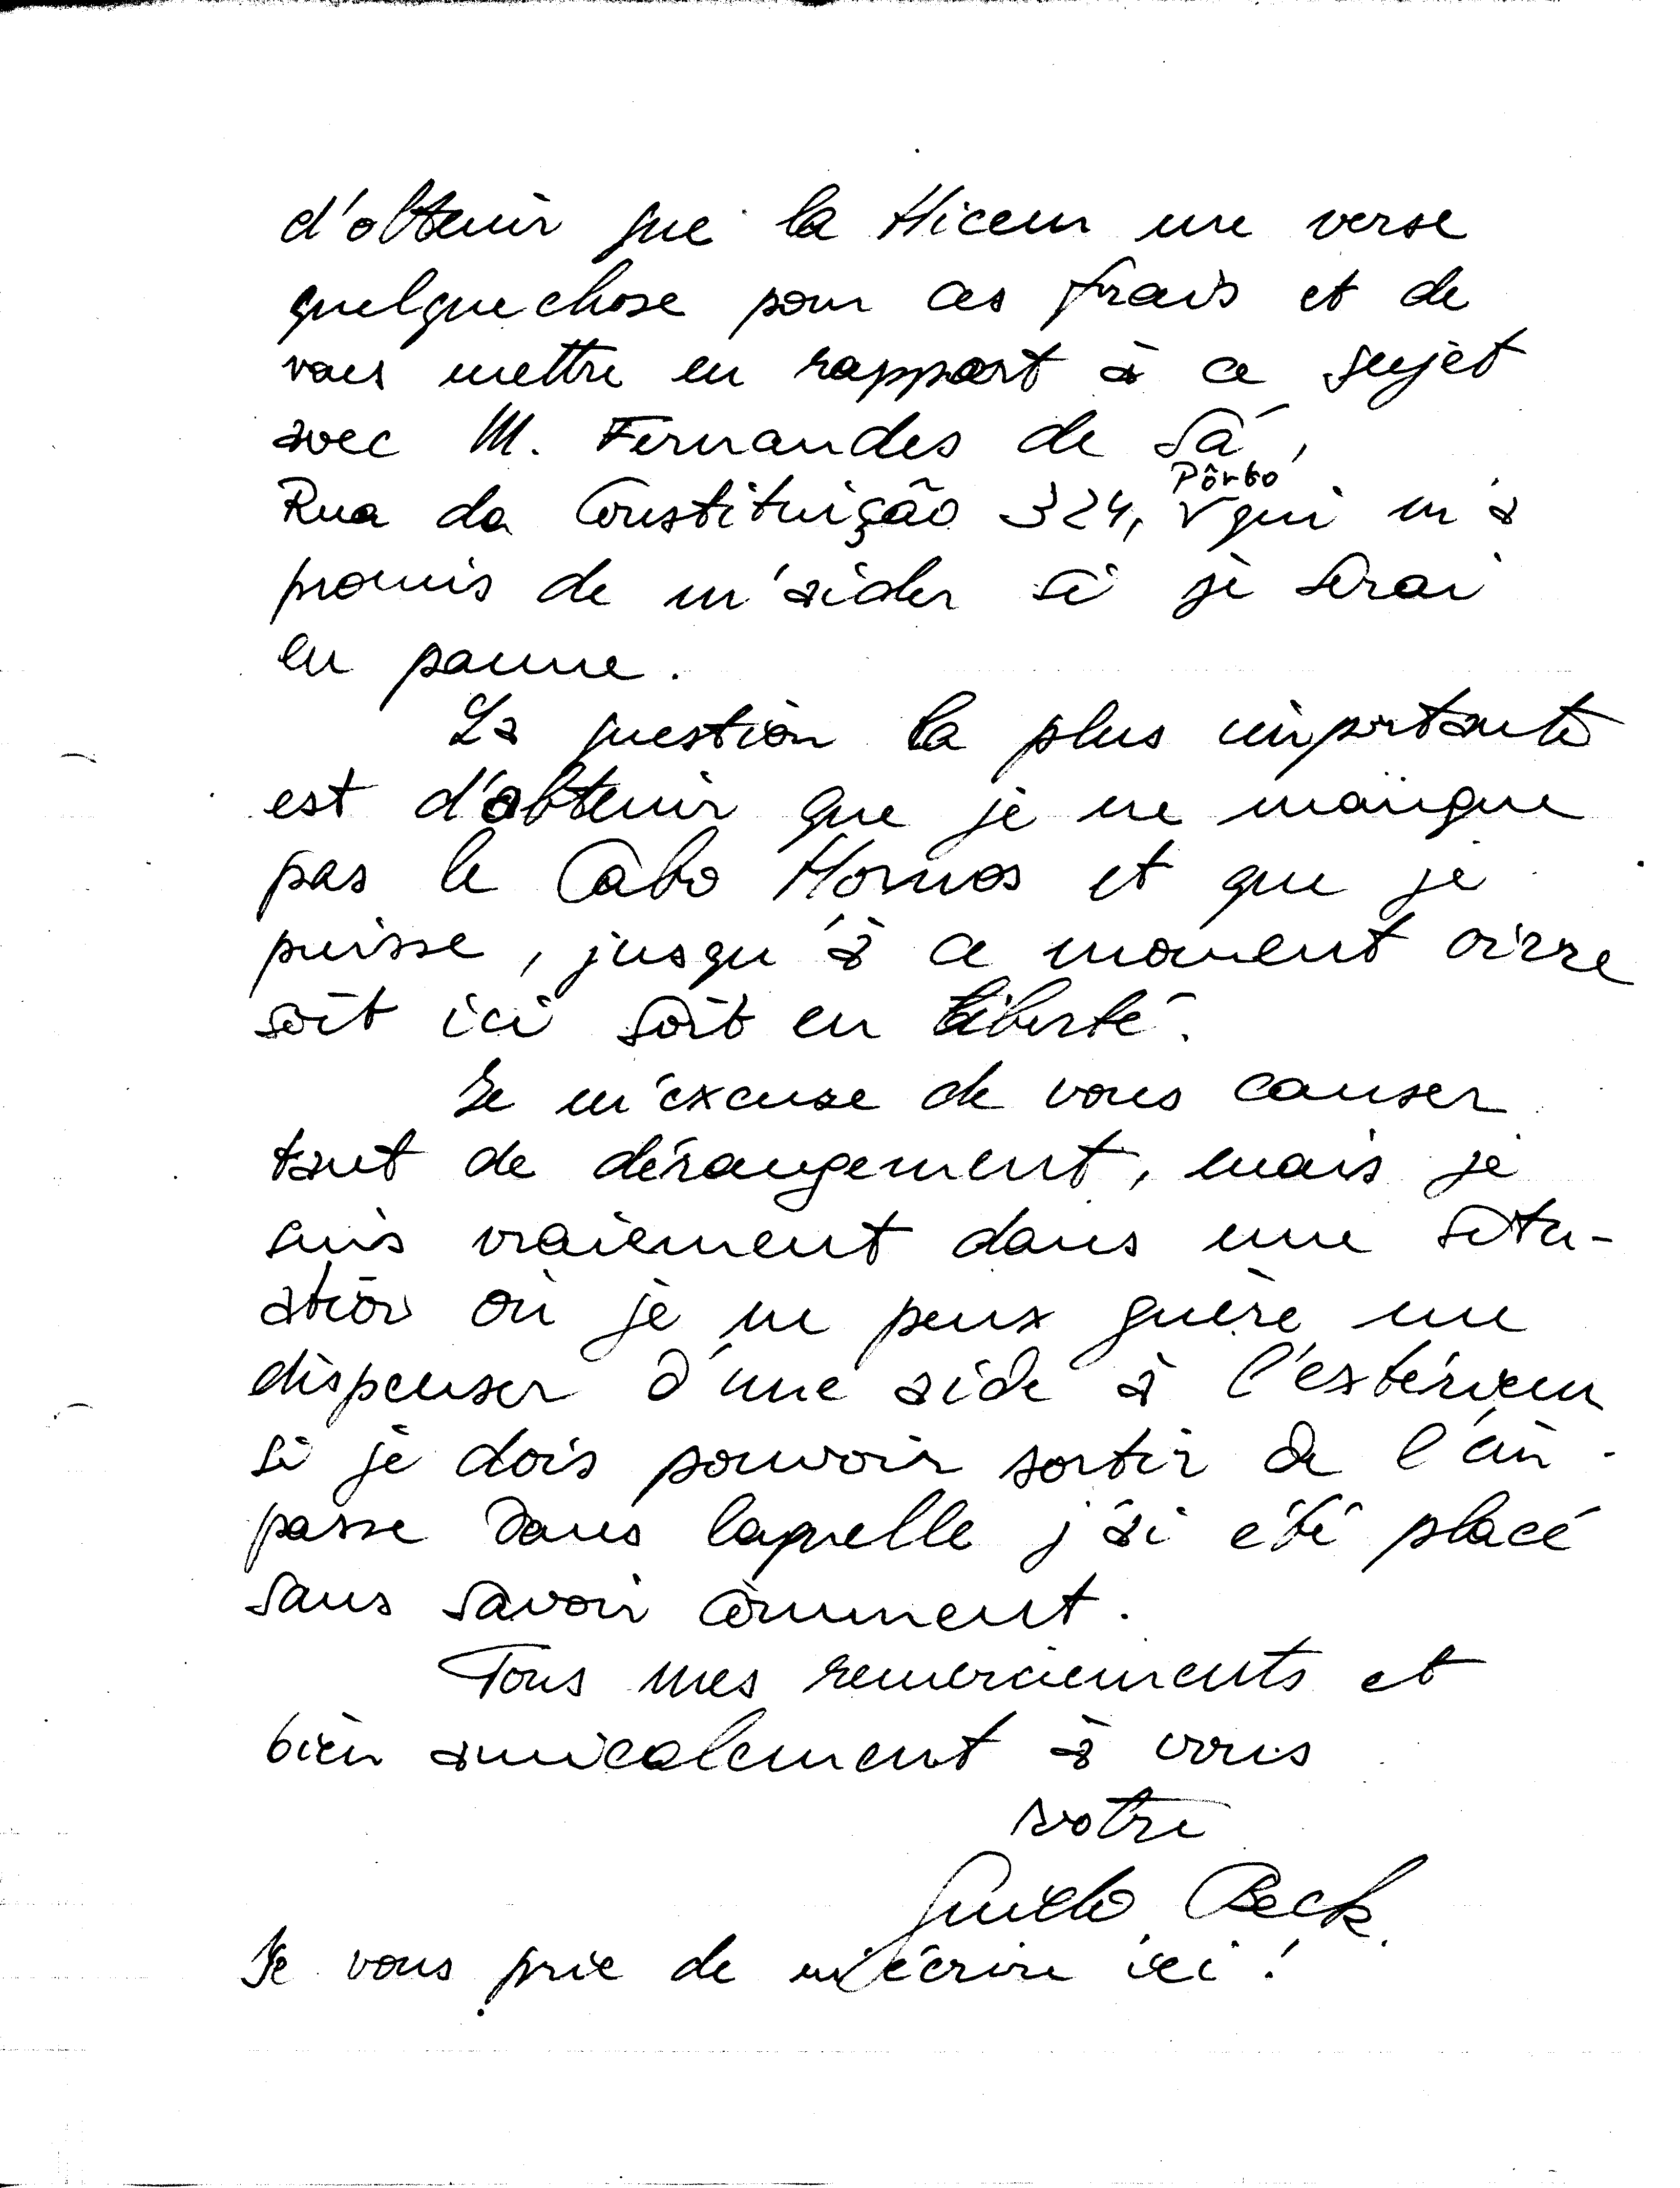 d'obtenir que la Hicem me verse
quelquechose pour ces frais et de
vous mettre en rapport à ce sujet
avec M. Fernandes de Sá,
Rua da Constituição 324, Pôrto qui m'a
promis de m'aider si je serai
en panne.
La question la plus importante
est d'obtenir que je ne manque
pas le Cabo Hornos et que je
puisse, jusqu'à ce moment vivre
soit ici soit en liberté.
Je m'excuse de vous causer
tant de dérangement, mais je
suis vraiement dans une situ-
ation où je ne peux guère me
dispenser d'une aide à l'extérieur
si je dois pouvoir sortir de l'im-
passe dans laquelle j'ai été placé
sans savoir comment.
Tous mes remerciements et
bien amicalement à vous
votre
Guido Beck.
Je vous prie de m'écrire ici!